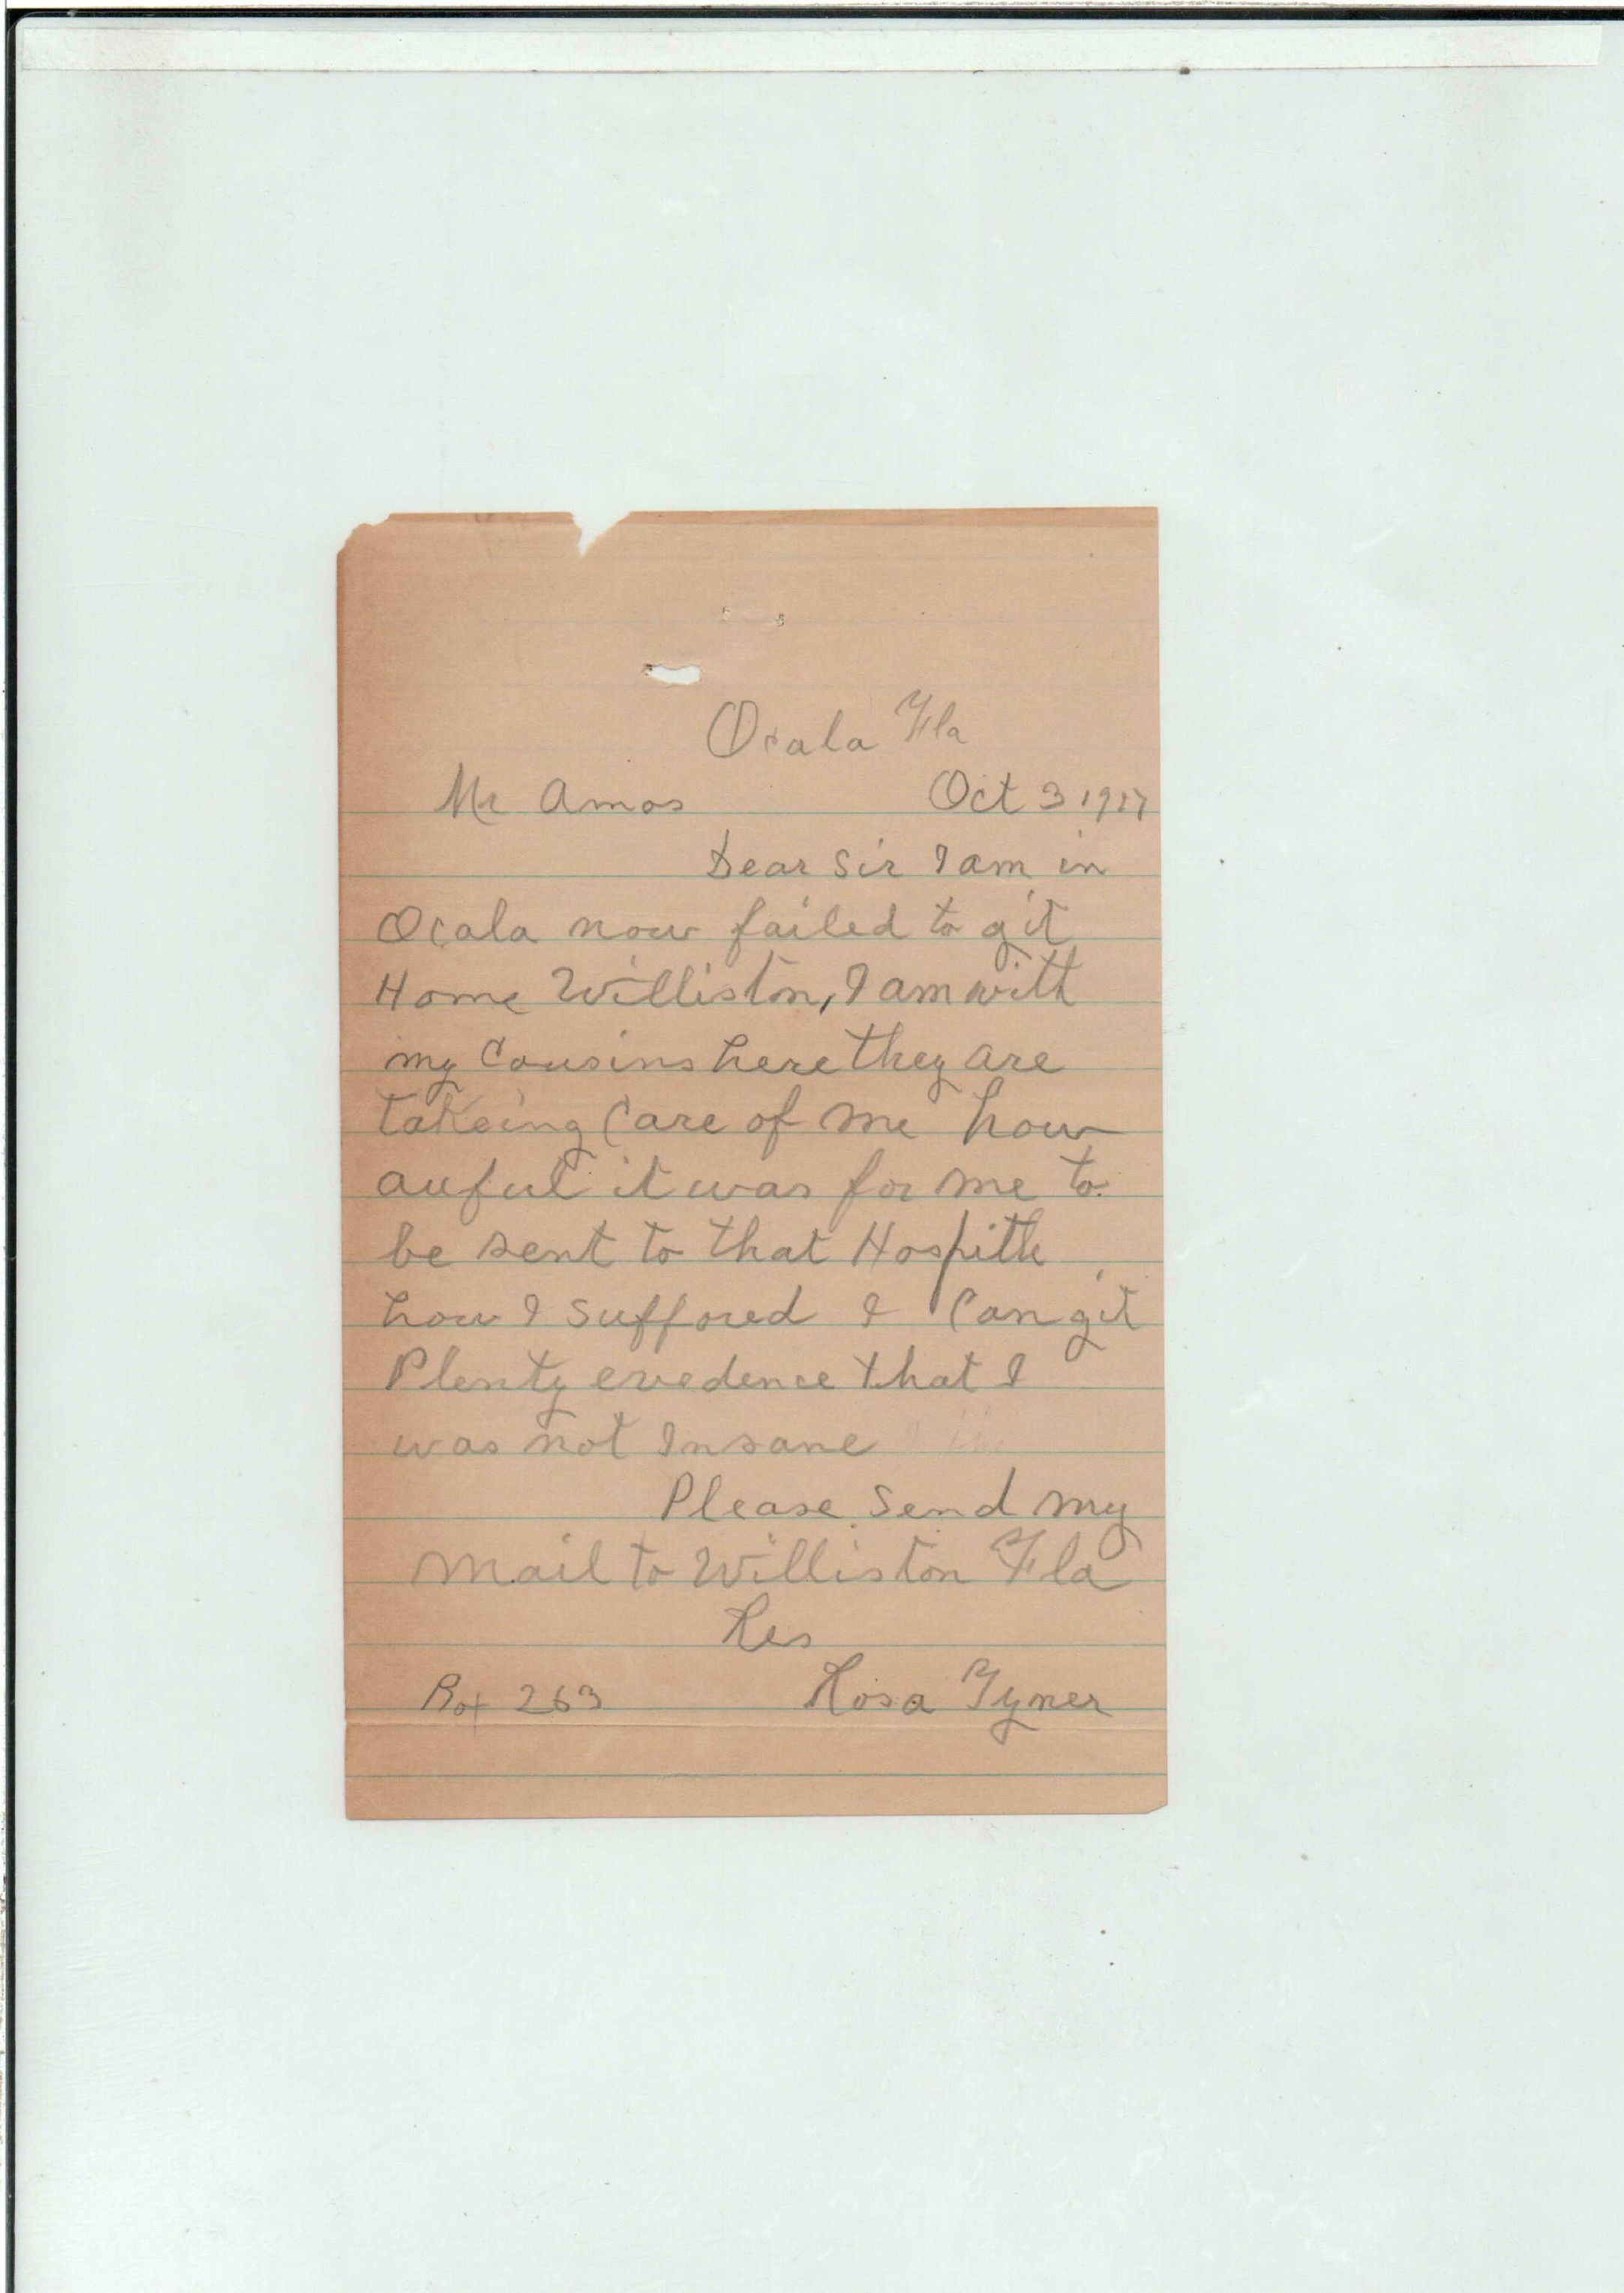 Ocala Fla
Mr Amos Oct 3 1927
Dear Sir I am in
Ocala now failed to git
Home Williston, I am with
my Cousins here they are
takeing Care of me how
auful it was for me to
be sent to that Hospitle
how I suffored I Can git
Plenty evedence that I
was not Insane
Please Send my
Mail to Williston Fla
Res
Box 263 Rosa Tyner